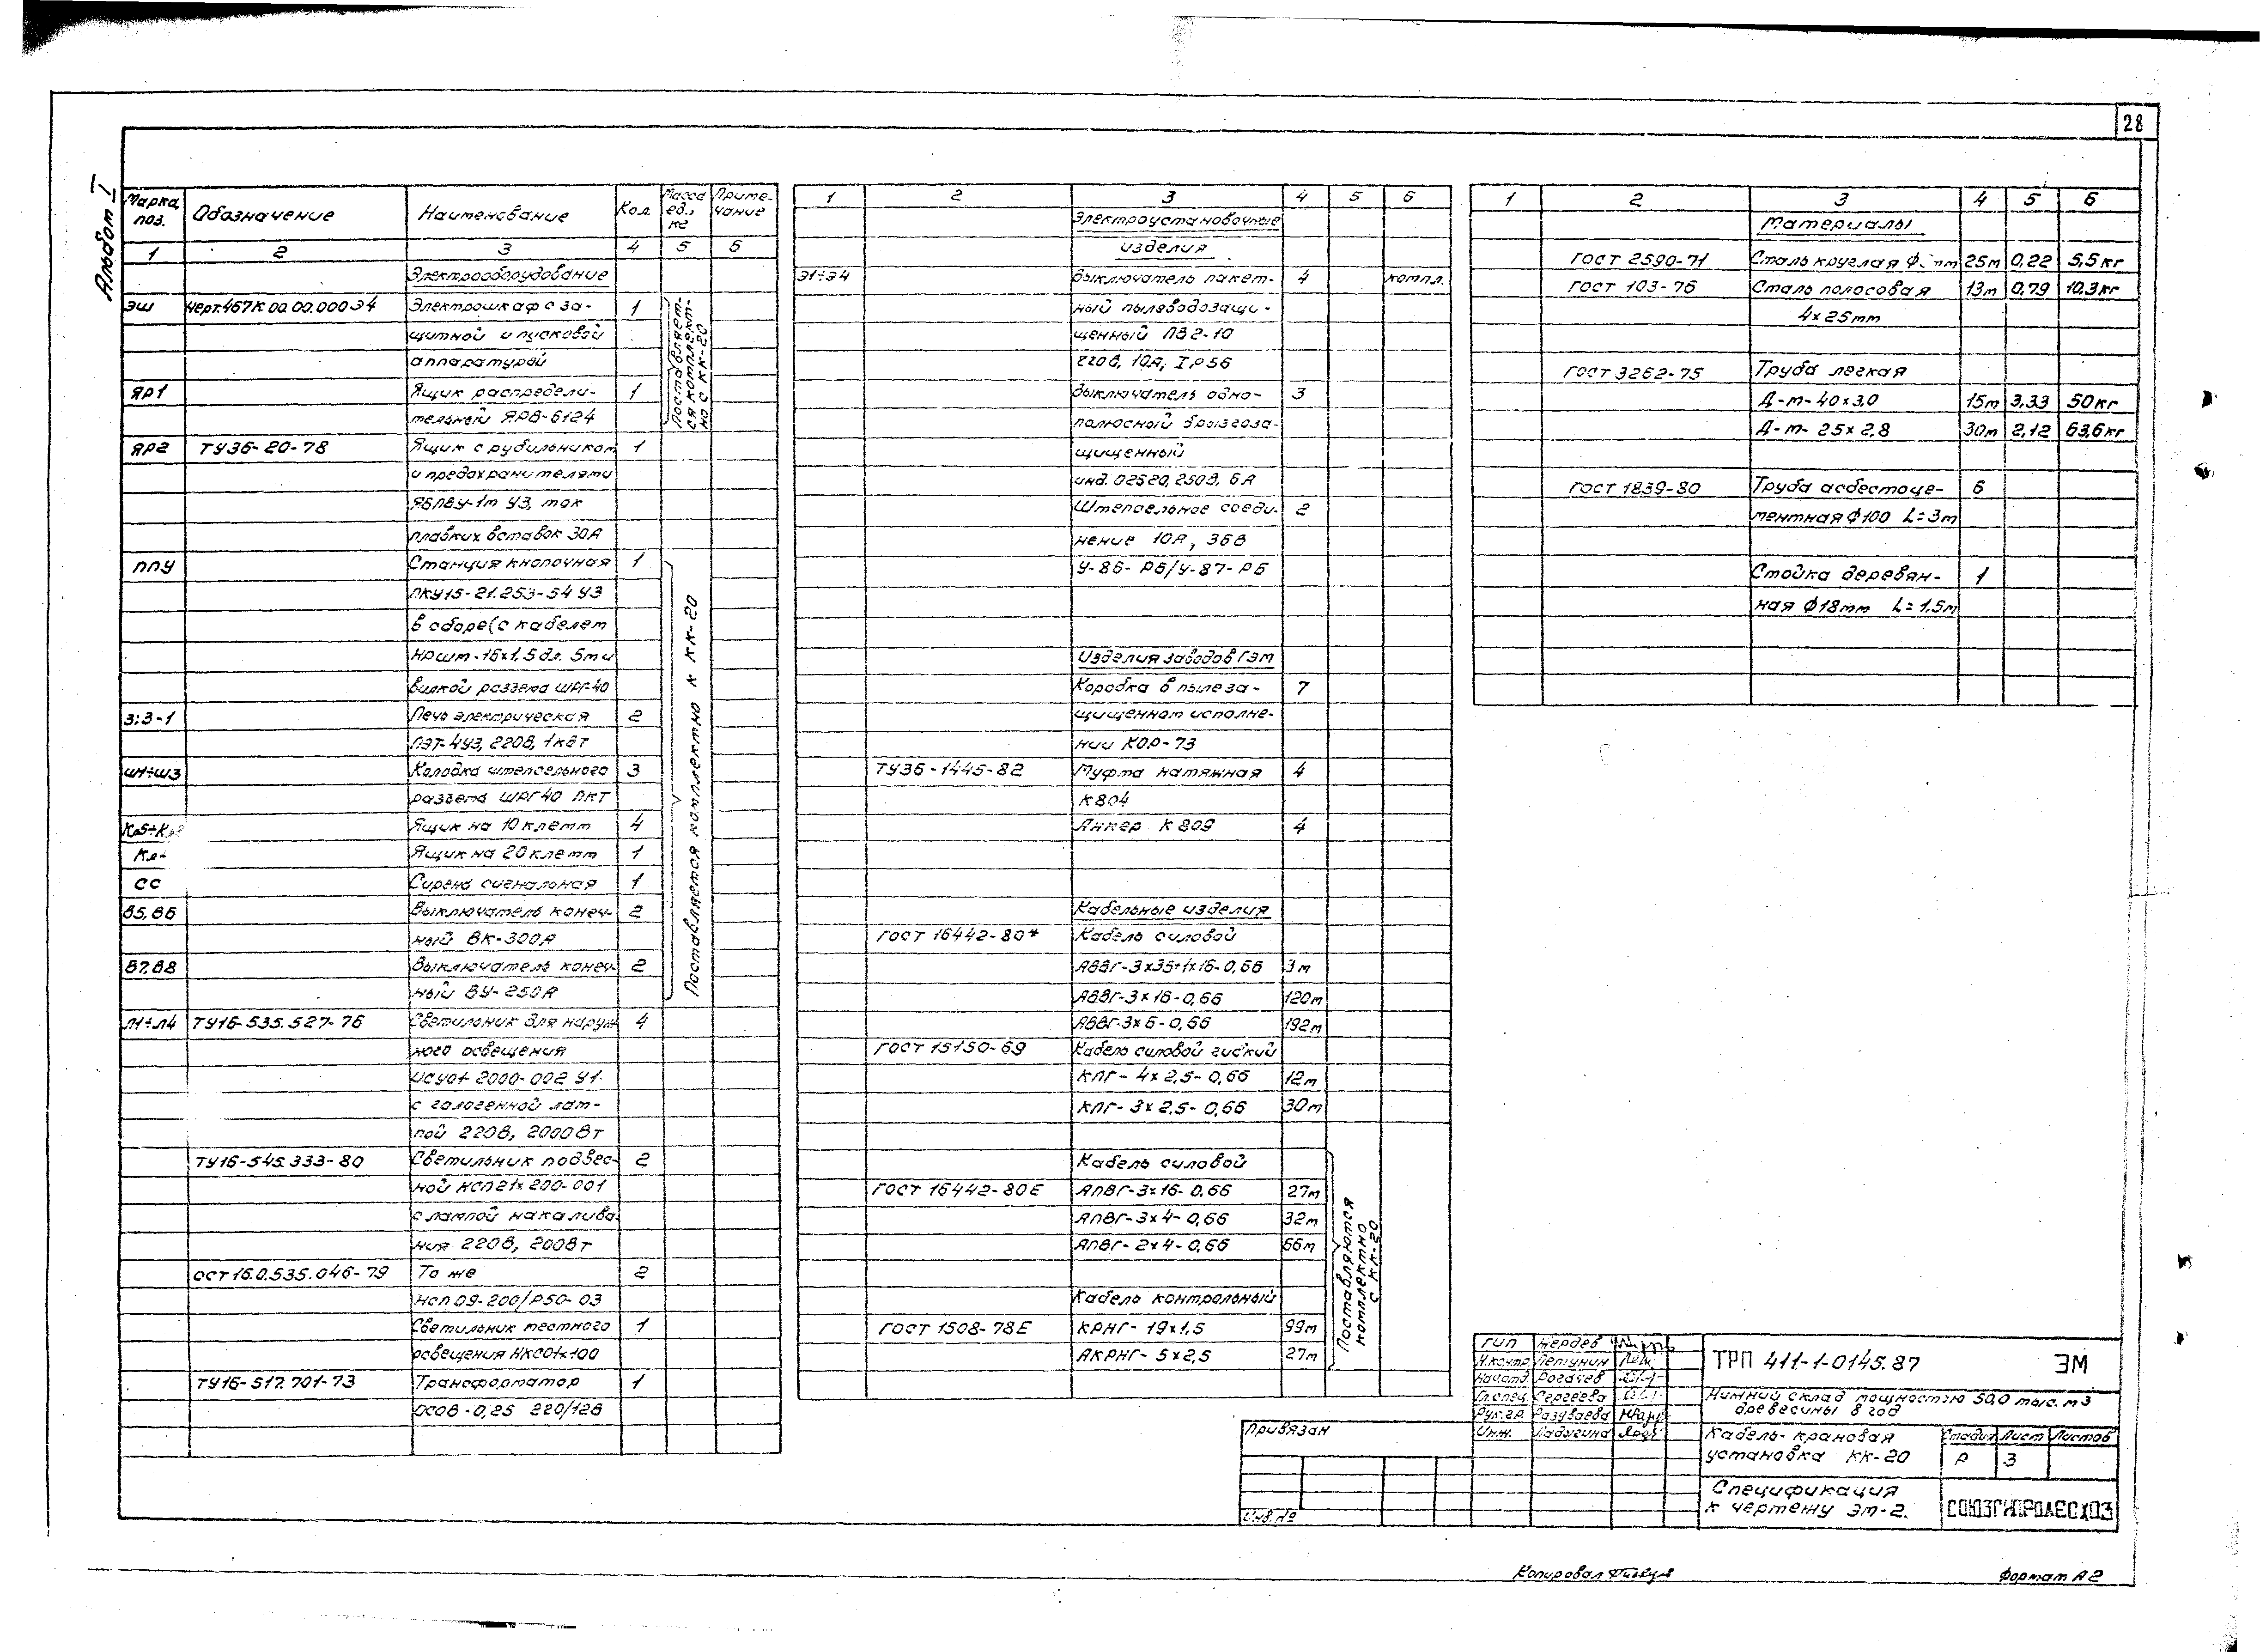 28
Альбом I
Марка поз. Обозначение Наименование Кол. Масса ед., кг Примечание
1 2 3 4 5 6
Электрооборудование
ЭШ черт.467К.00.00.000Э4 Электрошкаф с за- 1
щитной и пусковой
аппаратурой
ЯР1 Ящик распредели- 1
тельный ЯРВ-6124
Поставляет-
ся комплект-
но с КК-20
ЯР2 ТУ36-20-78 Ящик с рубильником 1
и предохранителями
ЯБПВУ-1м У3, ток
плавких вставок 30А
ППУ Станция кнопочная 1
ПКУ15-21.253-54 У3
в сборе (с кабелем
НРШМ-16х1,5 дл. 5м и
вилкой разъема ШРГ-40
3:3-1 Печь электрическая 2
ПЭТ-4У3, 220В, 1кВт
Ш1÷Ш3 Колодка штепсельного 3
разъема ШРГ40 ПКТ
Ящик на 10 клемм 4
Ящик на 20 клемм 1
СС Сирена сигнальная 1
В5,В6 Выключатель конеч- 2
ный ВК-300А
В7,В8 Выключатель конеч- 2
ный ВУ-250А
Поставляется комплектно к КК-20
Л1÷Л4 ТУ16-535.527-76 Светильник для наруж- 4
ного освещения
ИСУ01-2000-002 У1
с галогенной лам-
пой 220В, 2000Вт
ТУ16-545.333-80 Светильник подвес- 2
ной НСП21х200-001
с лампой накалива-
ния 220В, 200Вт
ОСТ 16.0.535.046-79 То же 2
НСП 09-200/Р50-03
Светильник местного 1
освещения НКС01х100
ТУ16-517.701-73 Трансформатор 1
ОСОВ-0,25 220/12В
1 2 3 4 5 6
Электроустановочные
изделия
Э1÷Э4 Выключатель пакет- 4 компл.
ный пылеводозащи-
щенный ПВ2-10
220В, 10А, IР56
Выключатель одно- 3
полюсный брызгоза-
щищенный
инд. 02620, 250В, 6А
Штепсельное соеди- 2
нение 10А, 36В
У-86-РБ/У-87-РБ
Изделия заводов ГЭМ
Коробка в пылеза- 7
щищенном исполне-
нии КОР-73
ТУ36-1445-82 Муфта натяжная 4
К804
Анкер К809 4
Кабельные изделия
ГОСТ 16442-80* Кабель силовой
АВВГ-3х35+1х16-0,66 3м
АВВГ-3х16-0,66 120м
АВВГ-3х6-0,66 192м
ГОСТ 15150-69 Кабель силовой гибкий
КПГ-4х2,5-0,66 12м
КПГ-3х2,5-0,66 30м
Кабель силовой
ГОСТ 16442-80Е АПВГ-3х16-0,66 27м
АПВГ-3х4-0,66 32м
АПВГ-2х4-0,66 66м
Кабель контрольный
ГОСТ 1508-78Е КРНГ-19х1,5 99м
АКРНГ-5х2,5 27м
Поставляются
комплектно
с КК-20
1 2 3 4 5 6
Материалы
ГОСТ 2590-71 Сталь круглая ф мм 25м 0,22 5,5кг
ГОСТ 103-76 Сталь полосовая 13м 0,79 10,3кг
4х25мм
ГОСТ 3262-75 Труба легкая
Д-м-40х3,0 15м 3,33 50кг
Д-м-25х2,8 30м 2,12 63,6кг
ГОСТ 1839-80 Труба асбестоце- 6
ментная ф100 L=3м
Стойка деревян- 1
ная ф18мм L=1,5м
ГИП Жердев
Н.контр. Петунин
Нач.отд. Рогачев
Гл.спец. Сергеева
Рук.гр. Разуваева
Инж. Ладыгина
ТРП 411-1-0145.87 ЭМ
Нижний склад мощностью 50,0 тыс. м3
древесины в год
Кабель-крановая
установка КК-20
Стадия Лист Листов
Р 3
Спецификация
к чертежу ЭМ-2.
СОЮЗГИПРОЛЕСХОЗ
Привязан
Инв. №
Копировал
Формат А2